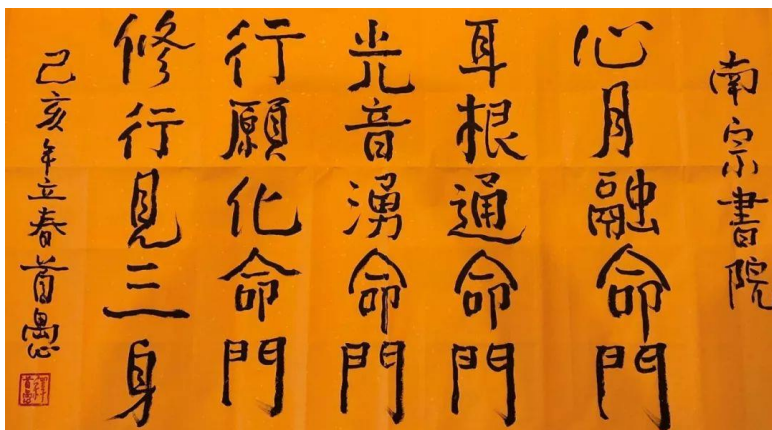 南宗書院
心月融命門
耳根通命門
光音湧命門
行願化命門
修行見三身
己亥年立春首愚